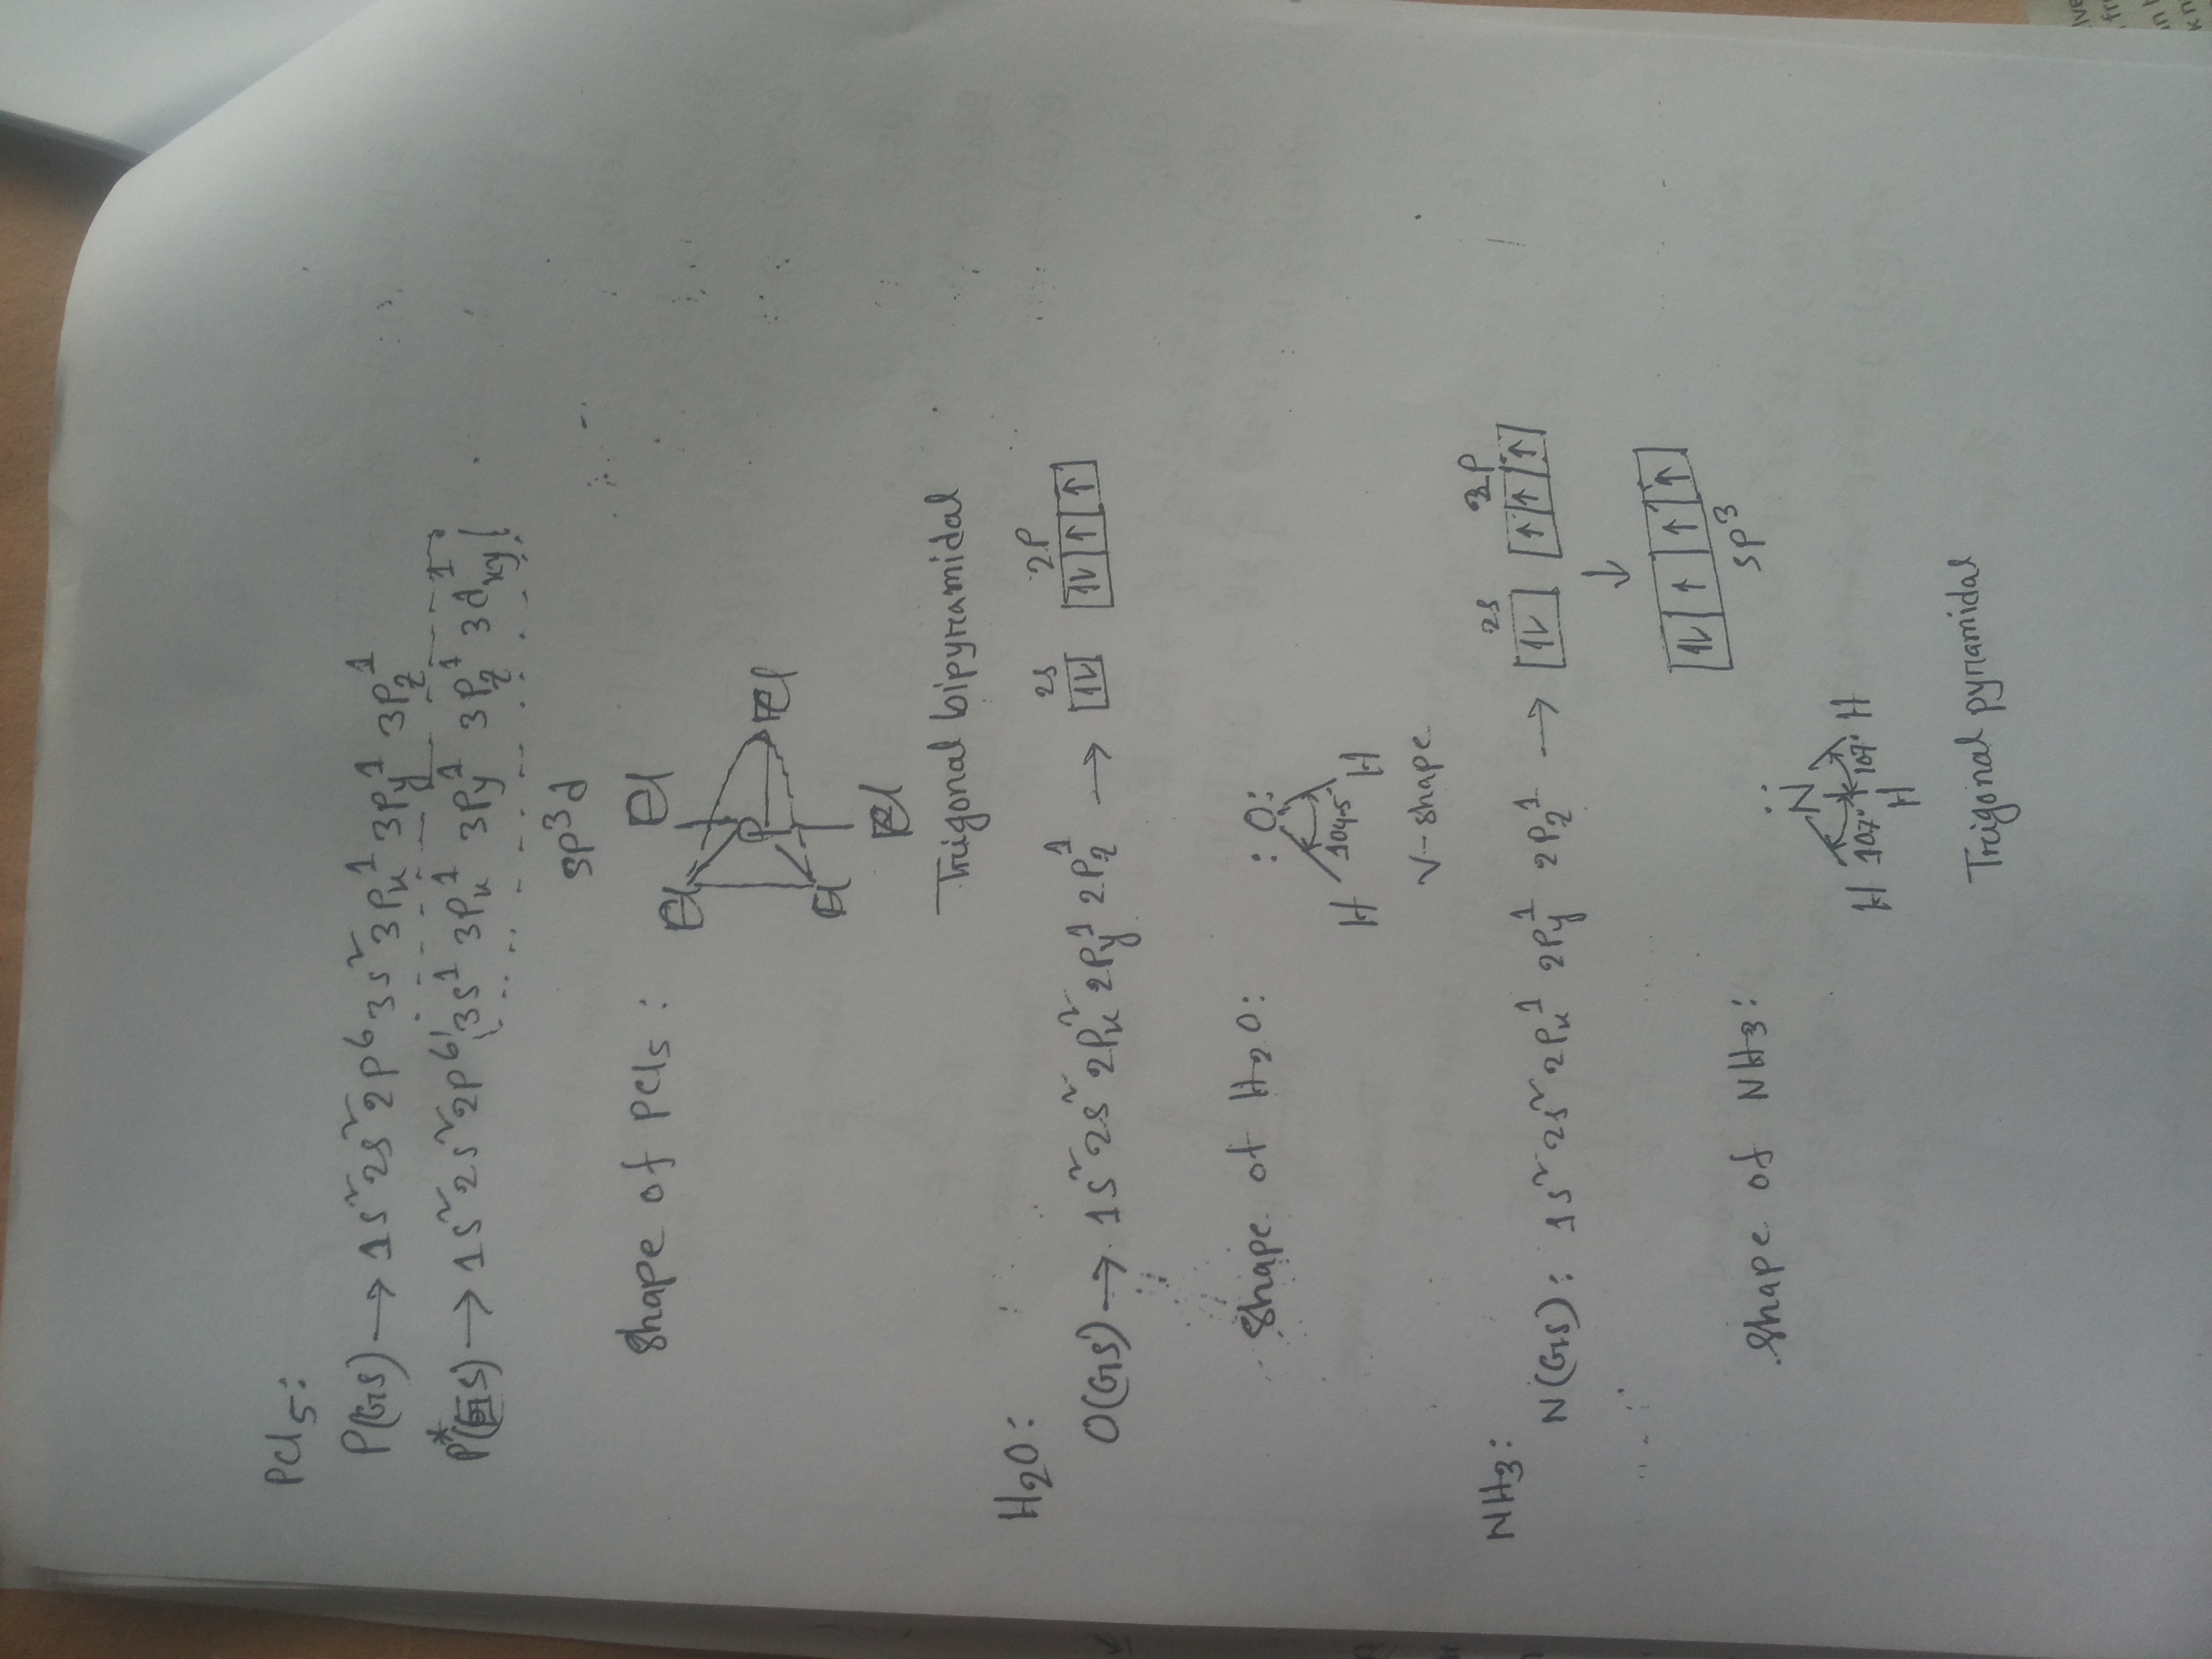 PCl5:
P(GS) → 1s² 2s² 2p⁶ 3s² 3Px¹ 3Py¹ 3Pz¹
P*(ES) → 1s² 2s² 2p⁶ 3s¹ 3Px¹ 3Py¹ 3Pz¹ 3dxy¹
SP³d
Shape of PCl5:
Cl
Cl
P
Cl
Cl
Cl
Trigonal bipyramidal
H2O:
2s 2P
O(GS) → 1s² 2s² 2Px² 2Py¹ 2Pz¹ → 1v 1v ↑ ↑
Shape of H2O:
:O:
H 104.5 H
V-shape
NH3:
2s 2P
N(GS): 1s² 2s² 2Px¹ 2Py¹ 2Pz¹ → 1v ↑ ↑ ↑
↓
1v ↑ ↑ ↑
SP³
Shape of NH3:
N
107° 107°
H H H
Trigonal pyramidal